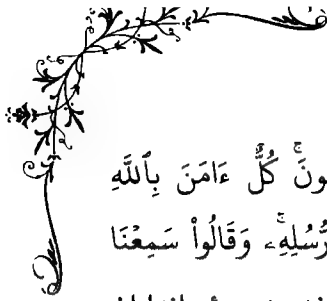 ونَۚ كُلٌّ ءَامَنَ بِٱللَّهِ
رُّسُلِهِۦۚ وَقَالُوا۟ سَمِعْنَا